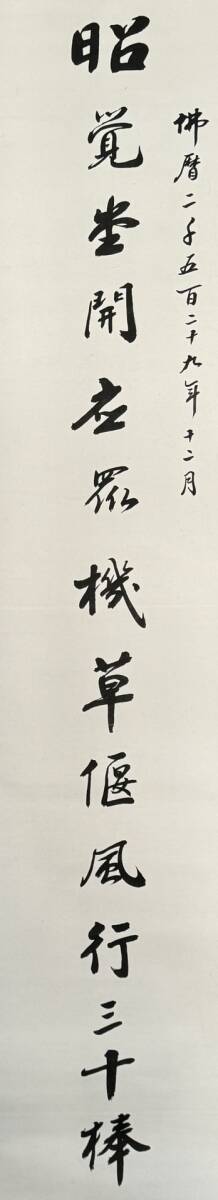 佛曆二千五百二十九年十二月
昭覺堂開應眾機草偃風行三十棒